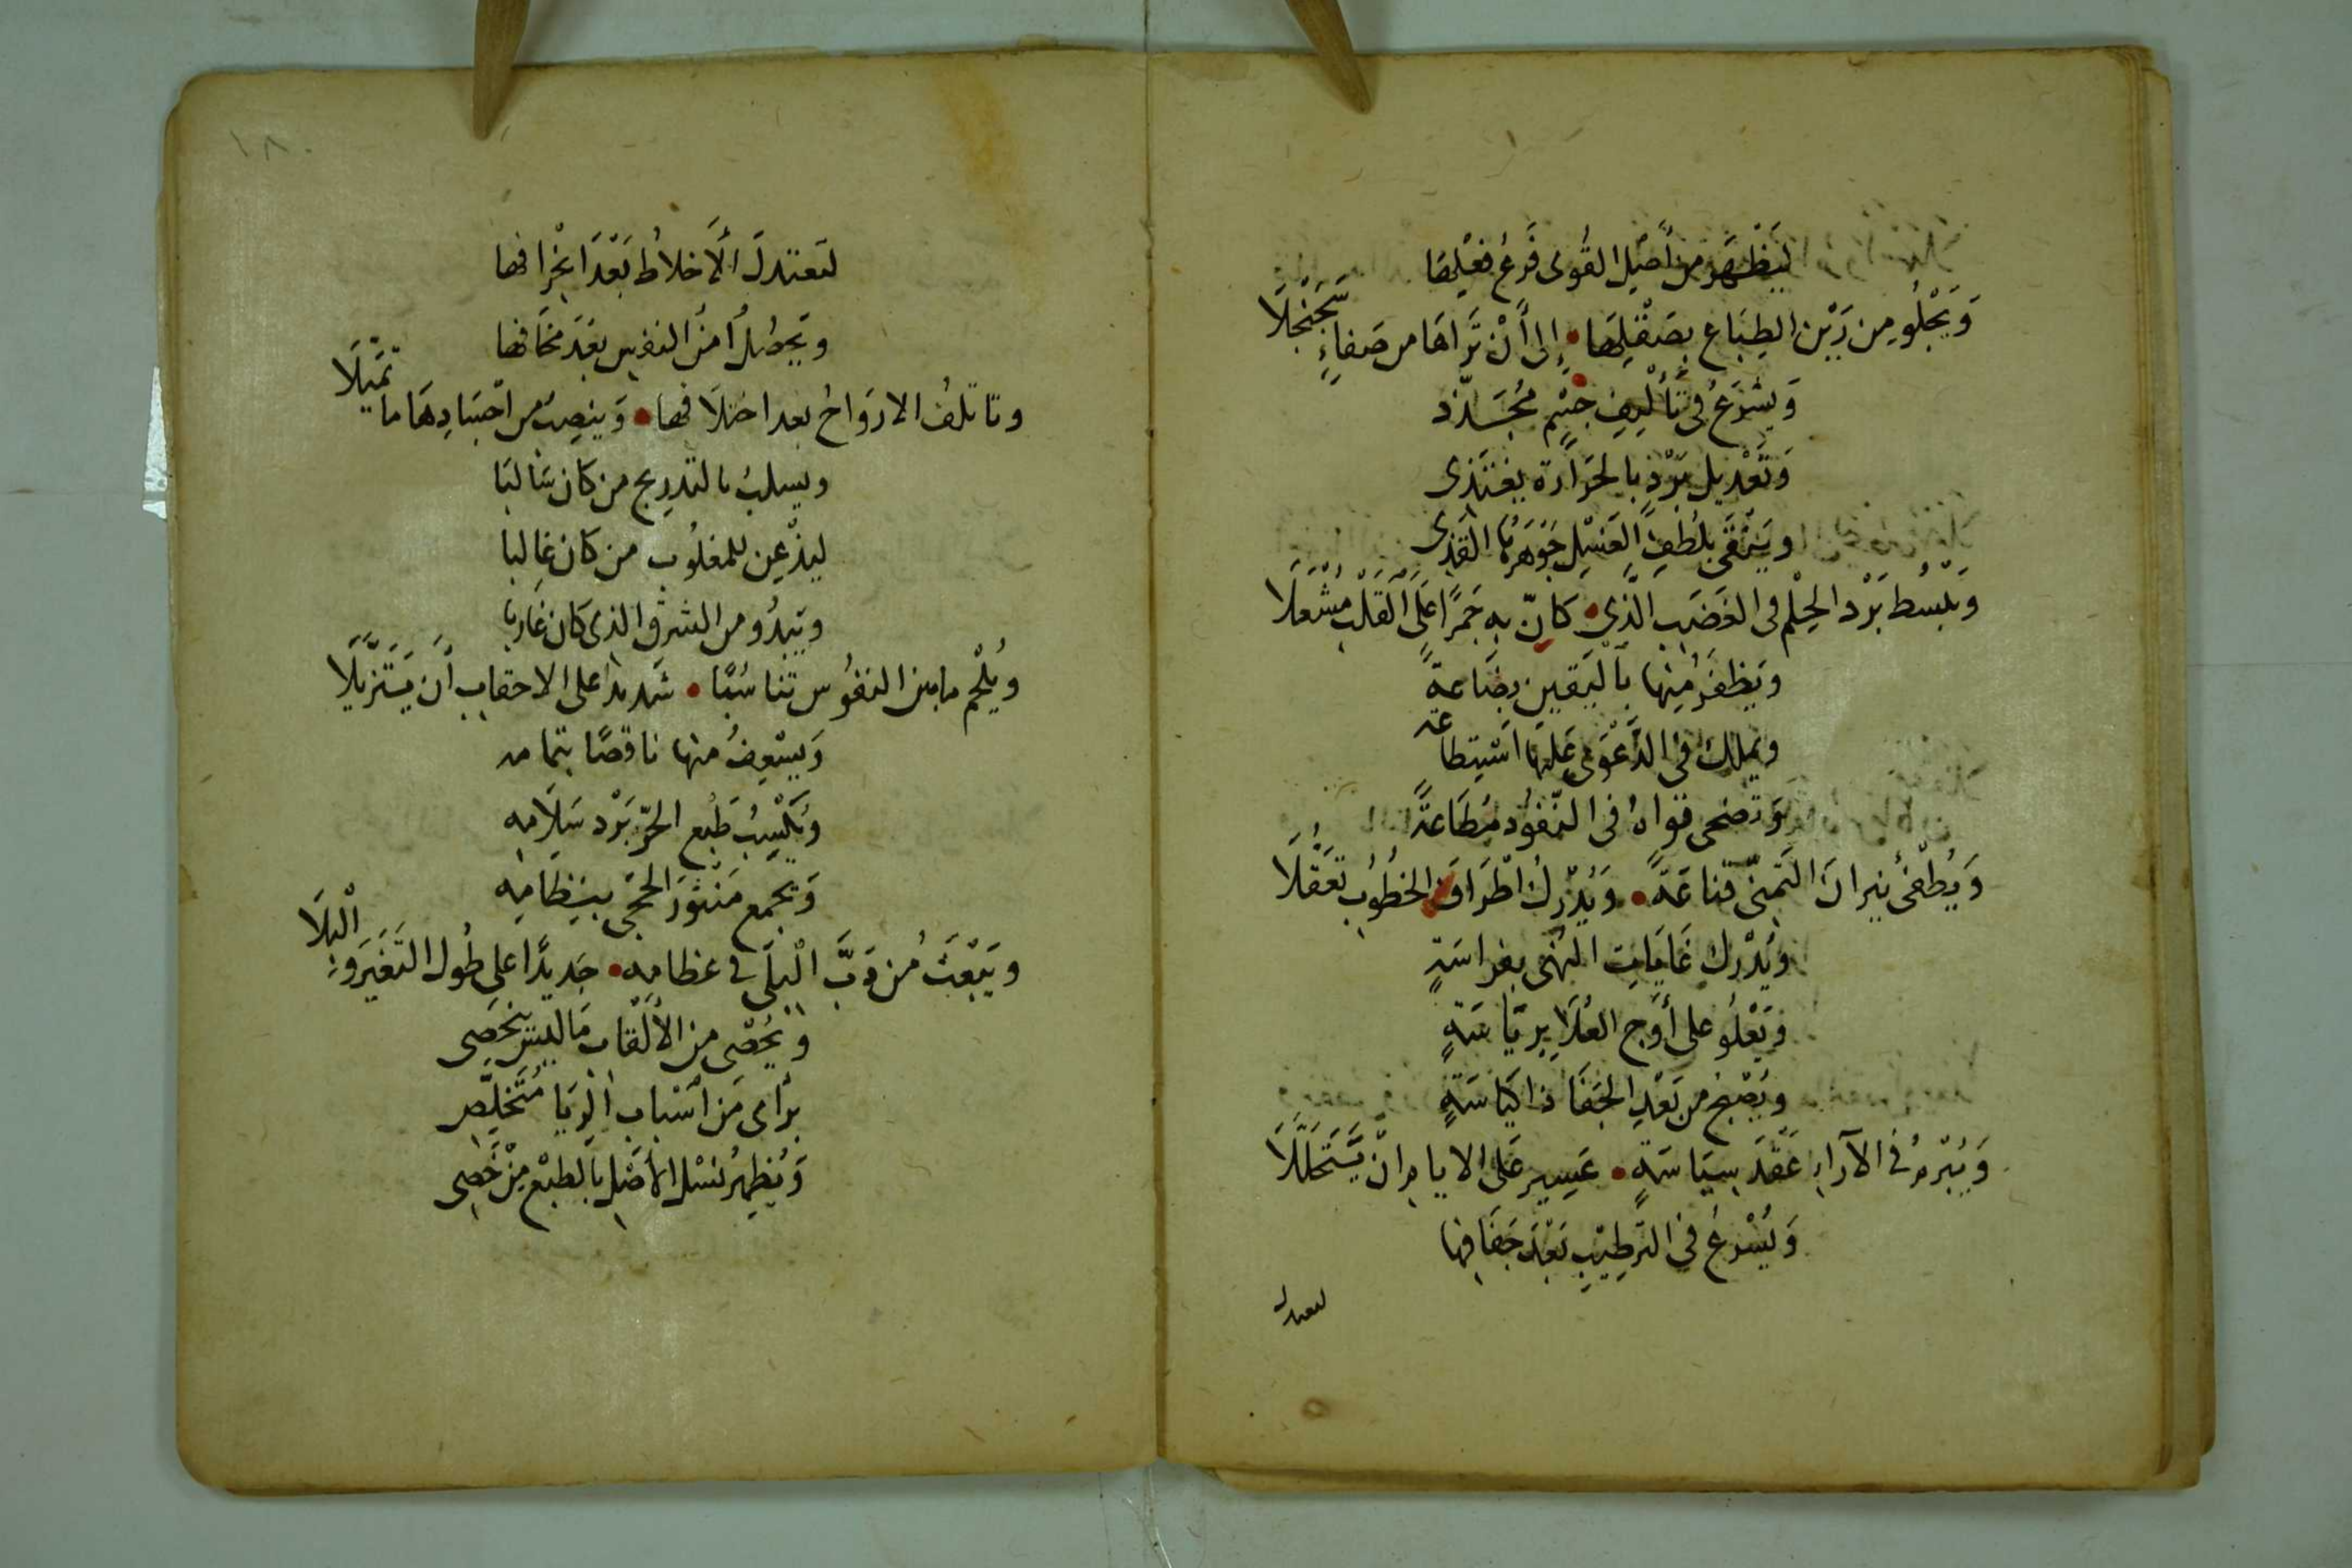 لِيَظْهَرَ من أَصْلِ القُوى فَرْعُ فِعْلِهَا
وَيَجْلُو مِن رَيْنِ الطِبَاعِ بِصَقْلِهَا • إلى أَنْ تَرَاهَا من صَفاءٍ سَجَنْجَلَا
وَيشْرَعُ في تَأْلِيفِ جِسْمٍ مُجَسَّدٍ
وَتَعْدِيلِ بَرْدٍ بالحَرَارَة يغتَذِى
وَيَنْقَى بلُطفِ الغَسْلِ جَوْهَرُهُ القَذِى
وَيَبْسُط بَرْد الحِلْم فى الغَضَبِ الَّذِي • كانَ بِه جَمرًا عَلَى القَلْبِ مُشْعَلَا
وَيَظفَرُ مِنها بِالْيَقِين بِضَاعةً
ويملك في الدَّعْوَى عَلَيْهَا اسْتِطاعَة
وَتَضحى قواهُ فى النّفوُد مُطَاعَةً
وَيُطْفى نيرانَ التَمنّى قناعَةً • وَيُدْرِكُ اطْرَافَ الخُطُوبِ تَعَقُّلَا
وَيُدْرِك غَايَاتِ النُهَى بفراسَةٍ
وَيَعْلُو على أَوَجِ العُلَا بِريَاسَةٍ
وَيُصْبِحُ من بَعْدِ الجَفَا ذا كَيَاسَةٍ
وَيُبْرِمُ في الآراءِ عَقْدَ سِيَاسَةٍ • عَسِير عَلى الايام انْ يَتَحَلَّلَا
وَيُسْرعُ في التَرطِيْبِ بَعْدَ جَفَافِها
لتعتدل
١٨٠
لتَعتدلَ الأَخلاطُ بَعْدَ انْحِرَافِها
ويَحصُلُ أمنُ النفسِ بَعْدَ مخَافها
وتاتلفُ الارْوَاحُ بعد اختلَافها • وَينصِبُ من اجْسَادِهَا ما تَمَيَّلَا
ويسلبُ بالتدرِيج من كَان سَالبَا
ليذْعِن للمغلُوبِ من كان غَالِبا
ويَبدُو من الشرق الذِى كان غَاربَا
ويُلْحِم ما بين النفوُس تناسُبًا • شديدا على الاحقابِ أن يَتَزَيَّلَا
وَيسْعِفُ منها ناقصًا بتمامه
وَيُكْسِبُ طَبع الحرّ بَرْد سَلَامِه
وَيجمع مَنْثورَ الحجى بِنِظَامِه
ويَبْعَثُ مُن دَبَّ الْبِلَى في عظامِه • جَديدًا على طُول التَغيّر وَالْبِلَا
وَيُحْصى من الأَلْقاب مَا ليس ينحَصِى
برَأى مَن أسْباب الرّيَا مُتَخلِّصِ
وَيُظهِرُ نسْلَ الأَصْلِ بالطبْع مِنْ خَصِى